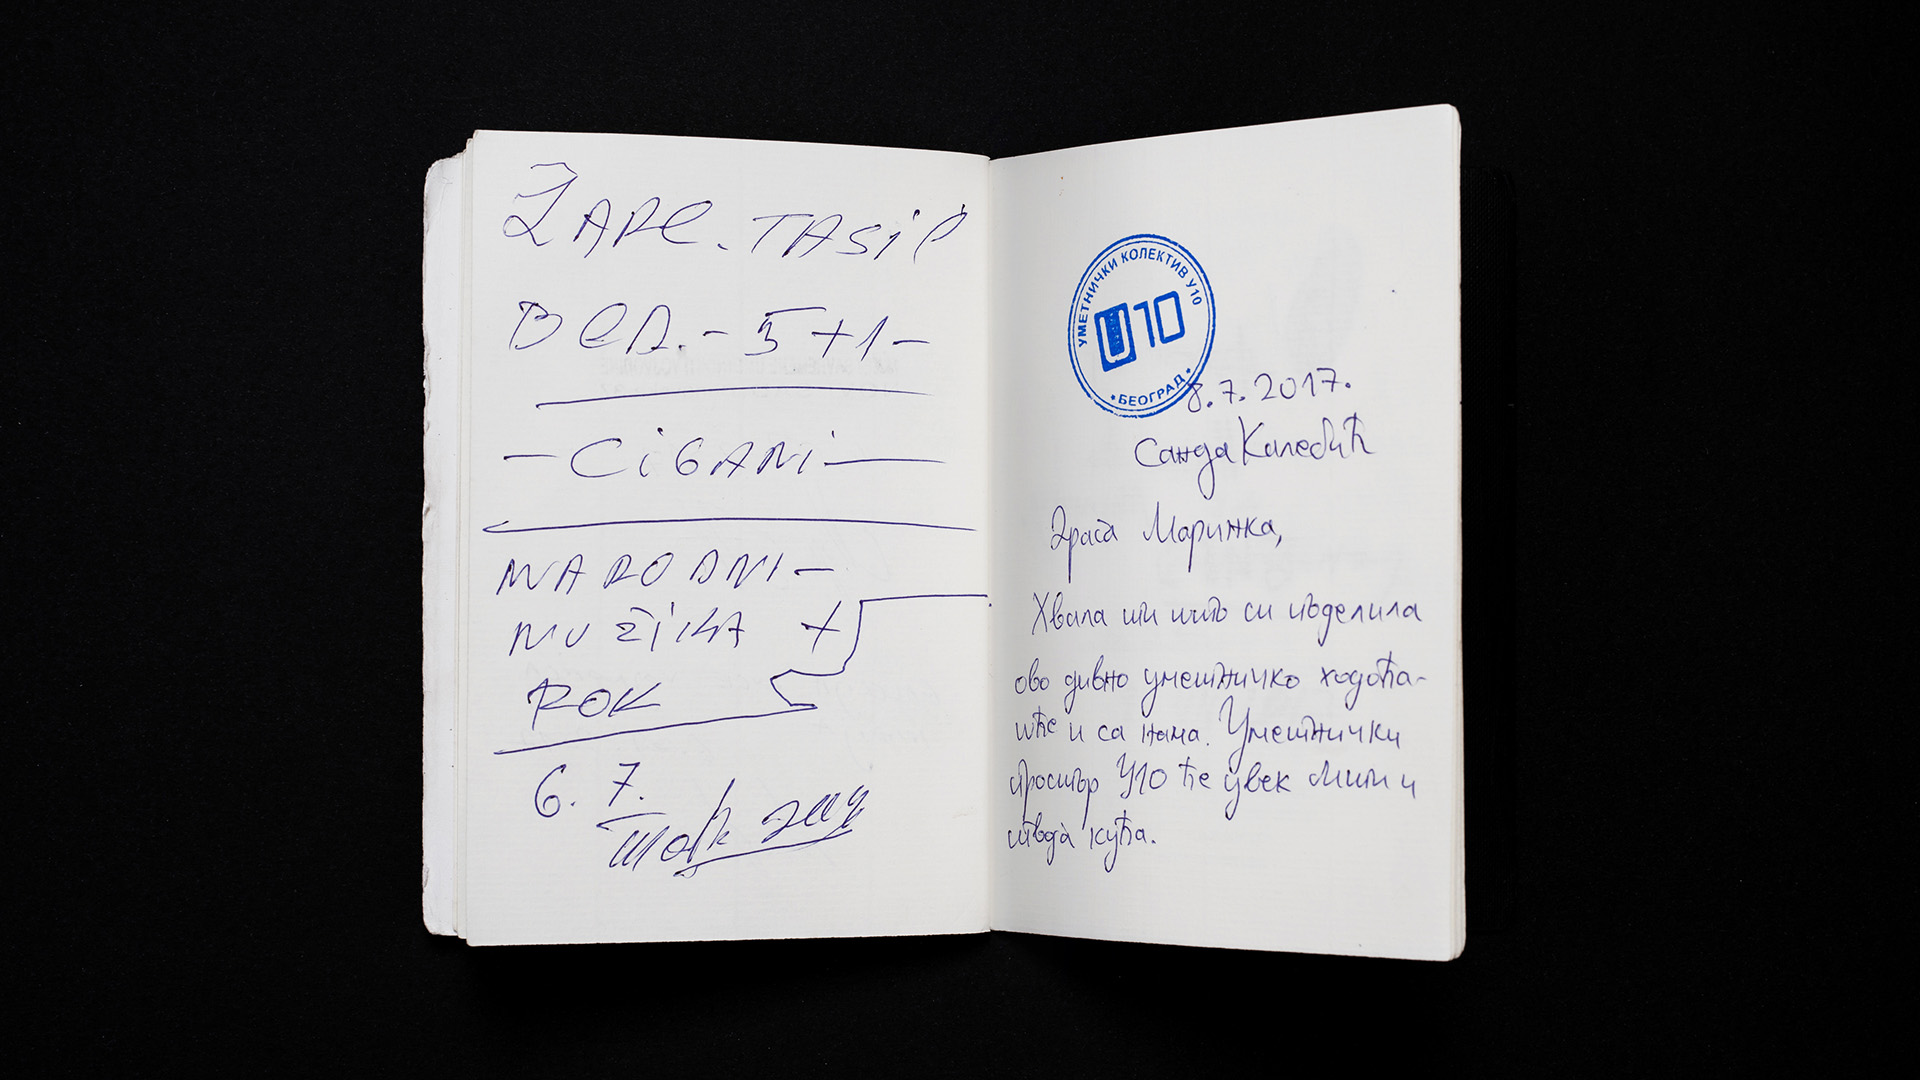 ŽARE. TASIĆ
BCA. - 5+1 -
- CiGANi -
NARODNI -
MUZiKA +
ROK
6. 7.
УМЕТНИЧКИ КОЛЕКТИВ У10
U10
• БЕОГРАД •
8.7.2017.
Санда Калебић
Драга Маринка,
Хвала ти што си поделила
ово дивно уметничко ходоча-
шће и са нама. Уметнички
простор У10 ће увек бити и
твоја кућа.